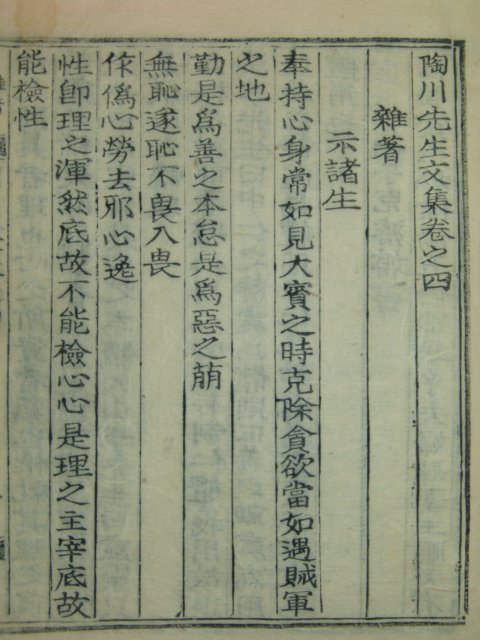 陶川先生文集卷之四
雜著
示諸生
奉持心身常如見大賓之時克除貪欲當如遇賊軍
之地
勤是爲善之本怠是爲惡之萠
無恥遂恥不畏入畏
作僞心勞去邪心逸
性卽理之渾然底故不能檢心心是理之主宰底故
能檢性